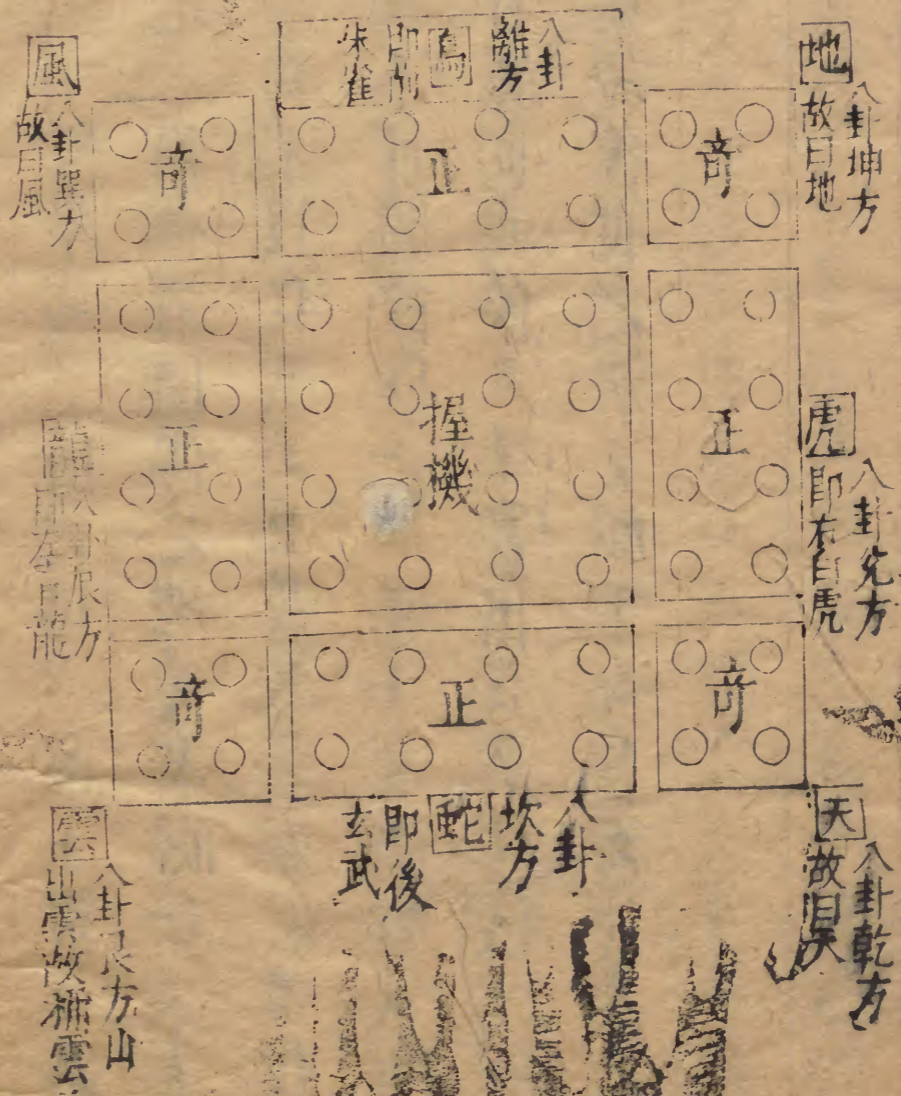 地
八卦坤方
故曰地
八卦
離方
鳥
即前
朱雀
風
八卦巽方
故曰風
竒
正
竒
虎
八卦兌方
即右白虎
正
握機
正
龍
八卦震方
即左青龍
竒
正
竒
天
八卦乾方
故曰天
八卦
坎方
蛇
即後
玄武
雲
八卦艮方山
出雲故稱雲